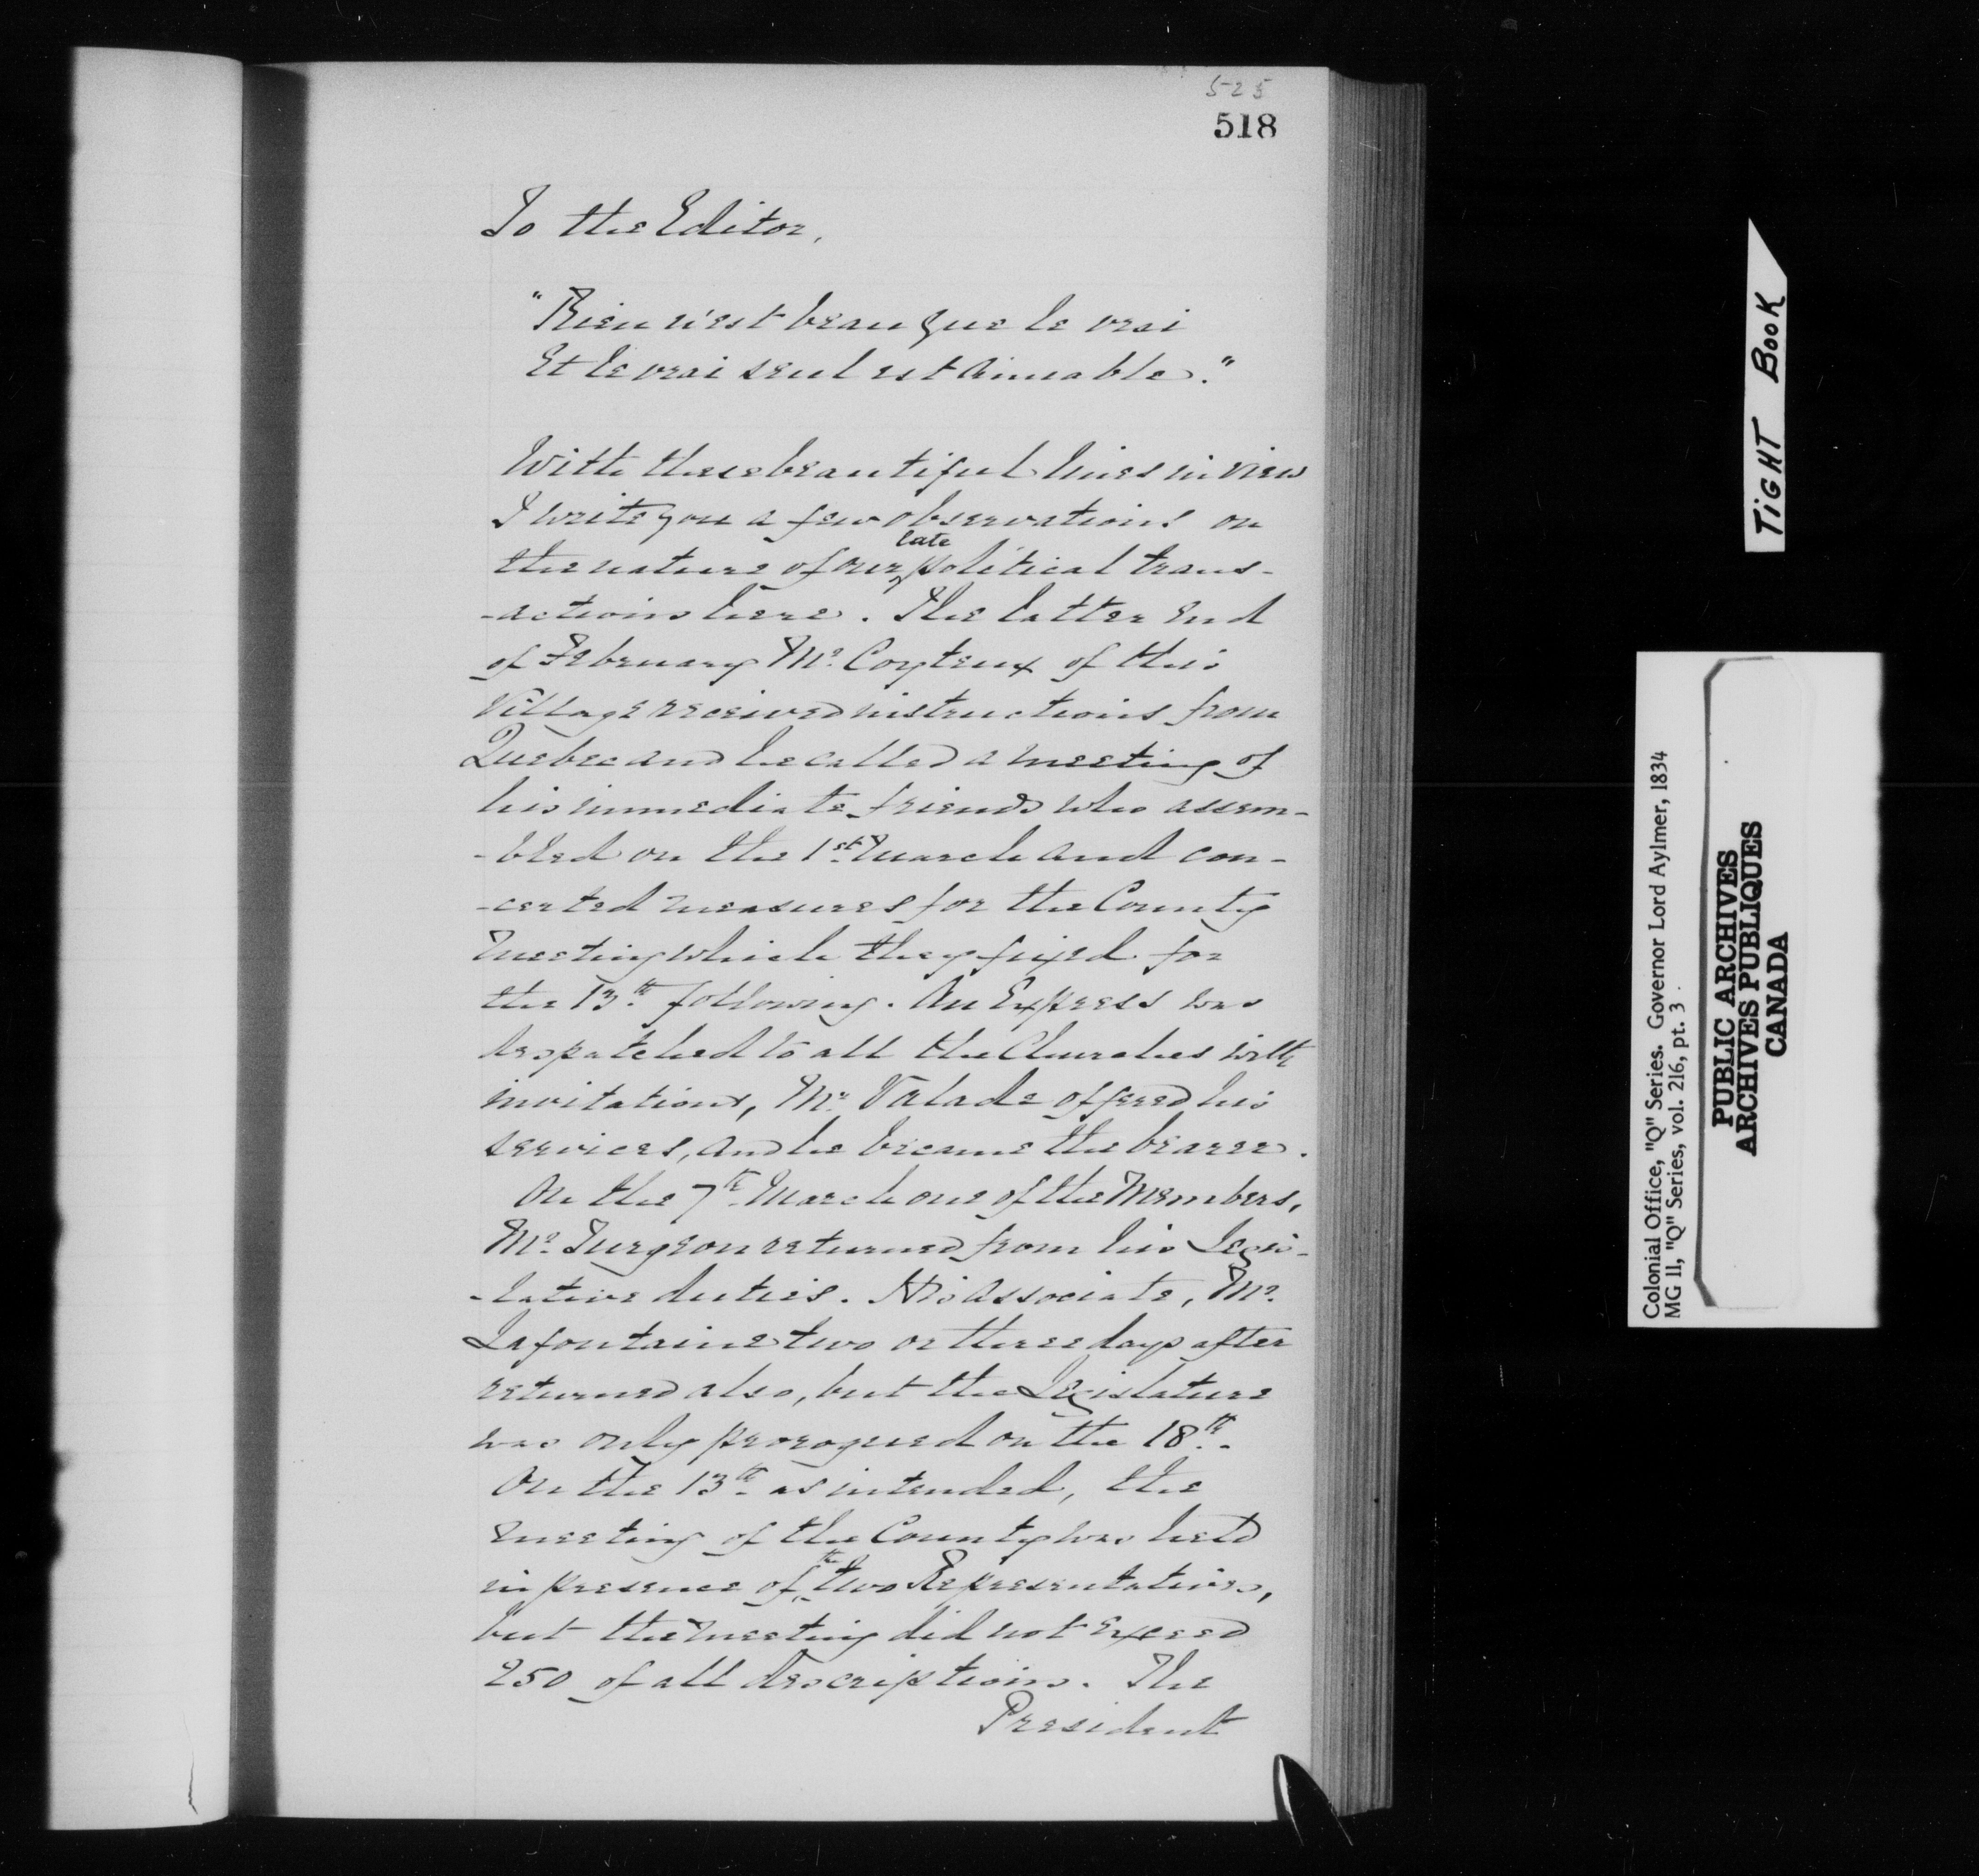 525
518
To the Editor,
"Rien n'est beau que le vrai
Et le vrai seul est aimable."
With these beautiful lines in view
I write you a few observations on
late
the nature of our political trans-
-actions here. The latter end
of February Mr. Coyteux of this
Village received instructions from
Quebec and he called a meeting of
his immediate friends who assem-
-bled on the 1st. March and con-
-certed measures for the County
Meeting which they fixed for
the 13th. following. An Express was
despatched to all the Churches with
invitations, Mr. Valade offered his
services, and he became the bearer.
On the 7th. March one of the Members,
Mr. Turgeon returned from his Legis-
-lative duties. His Associate, Mr.
Lafontaine two or three days after
returned also, but the Legislature
was only prorogued on the 18th.
On the 13th. as intended, the
meeting of the County was held
in presence of the two Representatives,
but the meeting did not exceed
250 of all descriptions. The
President
TIGHT BOOK
Colonial Office, "Q" Series. Governor Lord Aylmer, 1834
MG 11, "Q" Series, vol. 216, pt. 3
PUBLIC ARCHIVES
ARCHIVES PUBLIQUES
CANADA